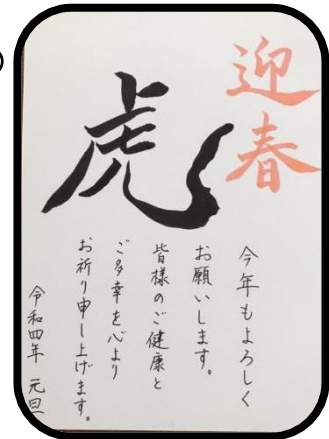 迎春
虎
今年もよろしく
お願いします。
皆様のご健康と
ご多幸を心より
お祈り申し上げます。
令和四年 元旦